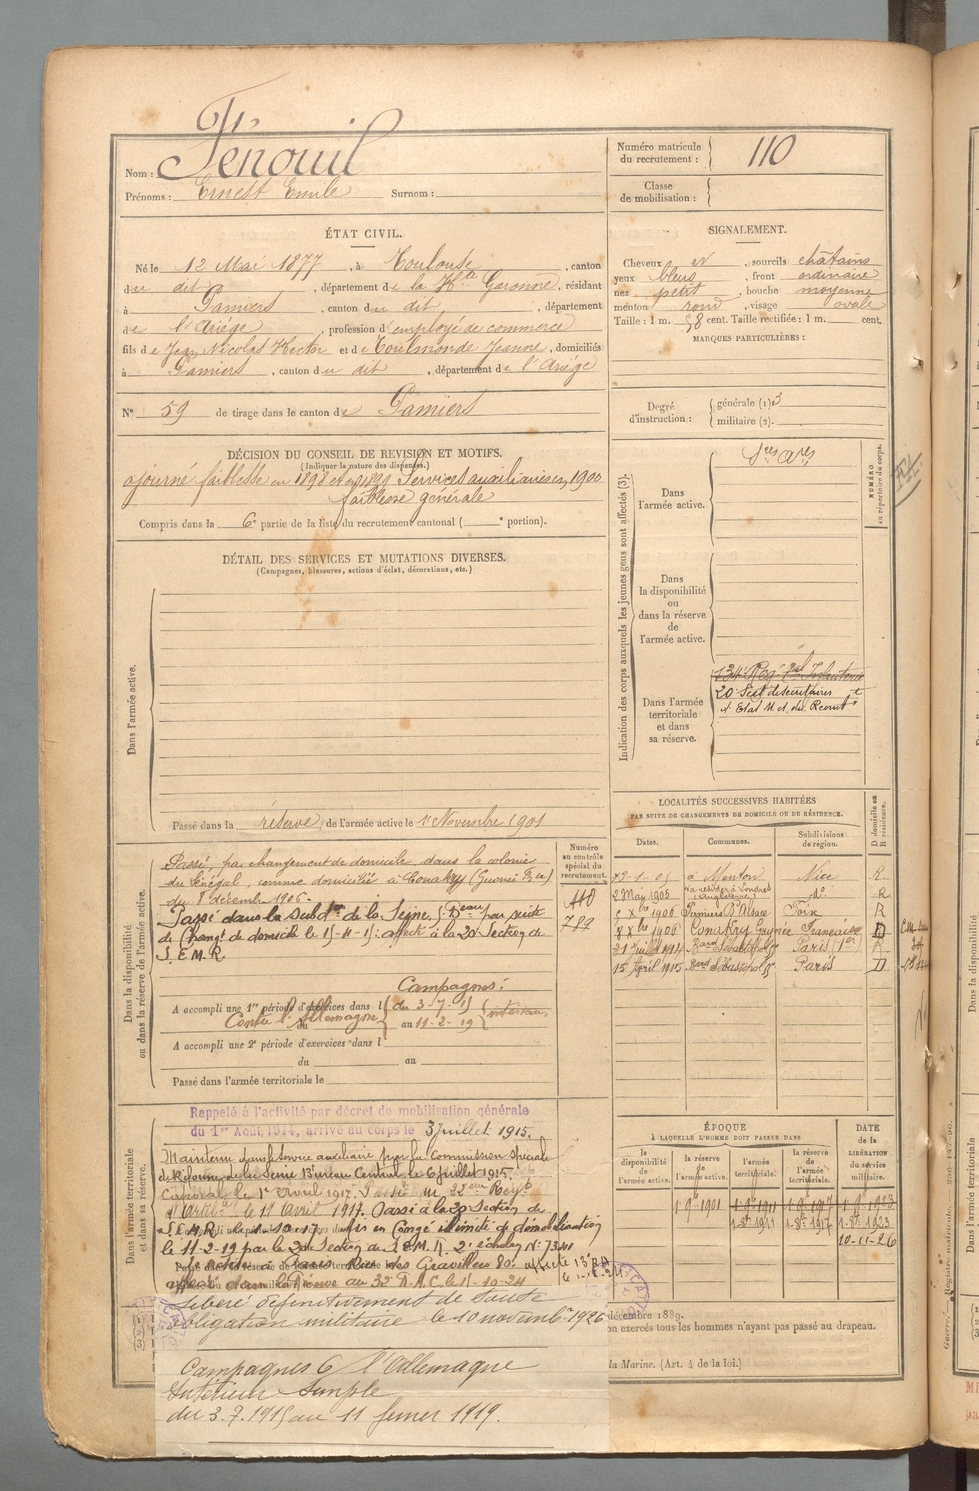 Nom : Fénouil
Prénoms : Ernest Emile Surnom :
ÉTAT CIVIL.
Né le 12 Mai 1877, à Toulouse, canton
du dit, département de la Hte Garonne, résidant
à Pamiers, canton du dit, département
de l'Ariège, profession d'employé de commerce
fils de Jean Nicolas Hector et de Toulmonde Jeanne, domiciliés
à Pamiers, canton du dit, département de l'Ariège
N° 59 de tirage dans le canton de Pamiers
DÉCISION DU CONSEIL DE REVISION ET MOTIFS.
(Indiquer la nature des dispenses.)
ajourné faiblesse en 1898 et en 1899 Services auxiliaires en 1900
faiblesse générale
Compris dans la 6e partie de la liste du recrutement cantonal ( e portion).
DÉTAIL DES SERVICES ET MUTATIONS DIVERSES.
(Campagnes, blessures, actions d'éclat, décorations, etc.)
Dans l'armée active.
Passé dans la réserve de l'armée active le 1er Novembre 1901
Dans la disponibilité
ou dans la réserve de l'armée active.
Passé par changement de domicile dans la colonie
du Sénégal, comme domicilié à Conakry (Guinée Fse)
du 8 décembre 1906.
Passé dans la Subdon de la Seine, Beau par suite
de changt de domicile le affecté à la 20 Section de
S.E.M.R.
Campagnes :
A accompli une 1re période d'exercices dans l
Contre l'Allemagne du 3-7-15 au 11-2-19 intérieur.
A accompli une 2e période d'exercices dans l
du au
Passé dans l'armée territoriale le
Numéro
au contrôle
spécial du
recrutement.
110
Dans l'armée territoriale
et dans sa réserve.
Rappelé à l'activité par décret de mobilisation générale
du 1er Août 1914, arrivé au corps le 3 Juillet 1915.
Maintenu dans le service auxiliaire par la Commission spéciale
de Réforme de la Seine Bureau Central le 6 juillet 1915.
le 1er Avril 1917. Passé au 22eme Regt
d'Artie le 11 Avril 1917. Passé à la 20 Section de
S.E.M.R. le 11-10-17. Mis en Congé illimité de démobilisation
le 11-2-19 par la 20 Section de S.E.M.R. 2e échelon N° 7341
Se retire à Paris Rue des Gravilliers 80. affecté
affecté dans la Réserve au 32e D.A.C. le 1-10-24
Libéré définitivement de toute
obligation militaire le 10 novembre 1926
Campagnes C/ l'Allemagne
Intérieur Simple
du 3.7.1915 au 11 fevrier 1919.
Numéro matricule
du recrutement : 110
Classe
de mobilisation :
SIGNALEMENT.
Cheveux et, sourcils châtains
yeux bleus, front ordinaire
nez petit, bouche moyenne
menton rond, visage ovale
Taille : 1 m. 58 cent. Taille rectifiée : 1 m. cent.
MARQUES PARTICULIÈRES :
Degré
d'instruction :
générale (1) 3
militaire (2).
Indication des corps auxquels les jeunes gens sont affectés (3).
NUMÉRO
au répertoire du corps.
Dans
l'armée active.
Dans
la disponibilité
ou
dans la réserve
de
l'armée active.
Dans l'armée
territoriale
et dans
sa réserve.
134e Regt tal Infanterie
20 Sect de secrétaires
d'Etat M et du Recrutt
LOCALITÉS SUCCESSIVES HABITÉES
PAR SUITE DE CHANGEMENTS DE DOMICILE OU DE RÉSIDENCE.
Dates. Communes. Subdivisions
de région.
D domicile ou
R résidence.
à Menton Nice R
2 May 1905 va résider à Londres (Angleterre) do R
7 Xbre 1906 Pamiers Foix R
7 Xbre 1906 Conakry Guinée Française D
31 Juillet 1914 Bard Sébastopol Paris (1er) R
15 Avril 1915 Bard Sébastopol Paris D
ÉPOQUE
À LAQUELLE L'HOMME DOIT PASSER DANS
la
disponibilité
de
l'armée active.
la réserve
de
l'armée active.
l'armée
territoriale.
la réserve
de
l'armée
territoriale.
DATE
de la
LIBÉRATION
du service
militaire.
1-9bre 1901 1-9bre 1911 1-9bre 1917 1-9bre 1923
1-8bre 1911 1-8bre 1917 1-8bre 1923
10-11-26
décembre 1889.
on exercés tous les hommes n'ayant pas passé au drapeau.
la Marine. (Art. 4 de la loi.)